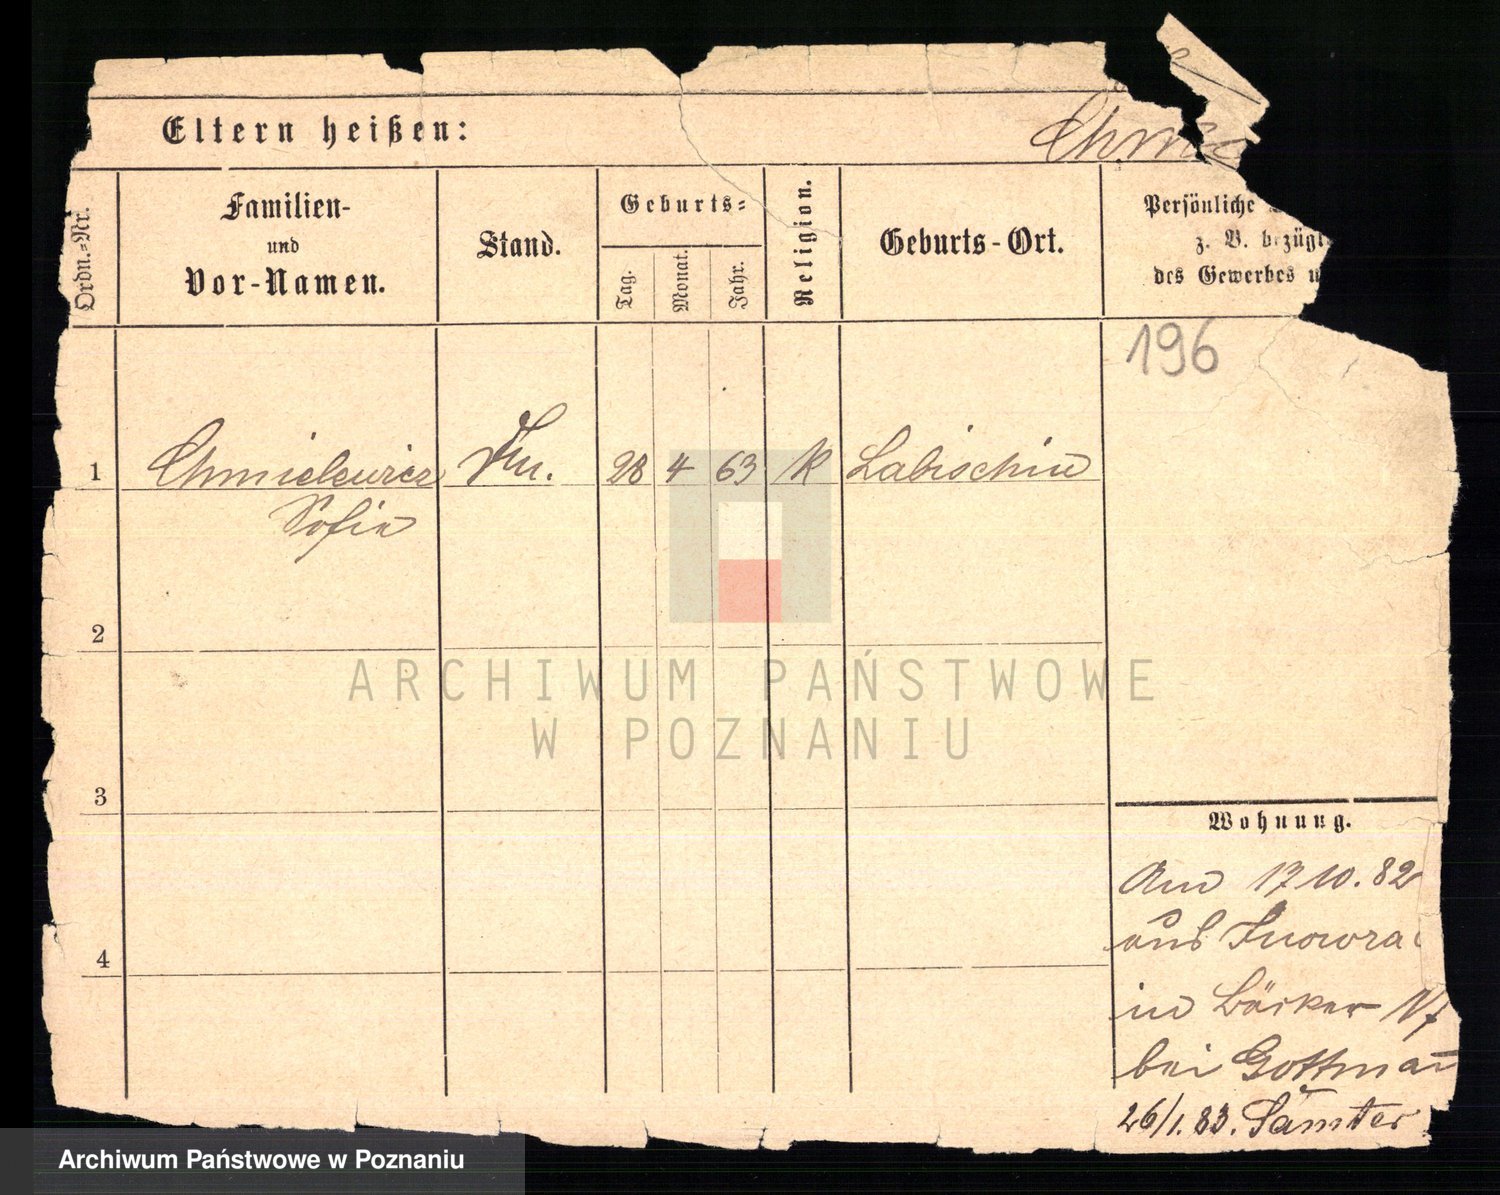 Eltern heißen:
Chmie
Ordn.-Nr.
Familien-
und
Vor-Namen.
Stand.
Geburts-
Tag.
Monat.
Jahr.
Religion.
Geburts-Ort.
Persönliche
z. B. bezügl
des Gewerbes u
196
1
Chmielewicz
Sofie
28 4 63 K Labischin
2
3
4
Wohnung.
Am 17 10. 82
aus Inowra
in Bäcker
bei Gottman
26/1. 83. Samter
ARCHIWUM PAŃSTWOWE
W POZNANIU
Archiwum Państwowe w Poznaniu